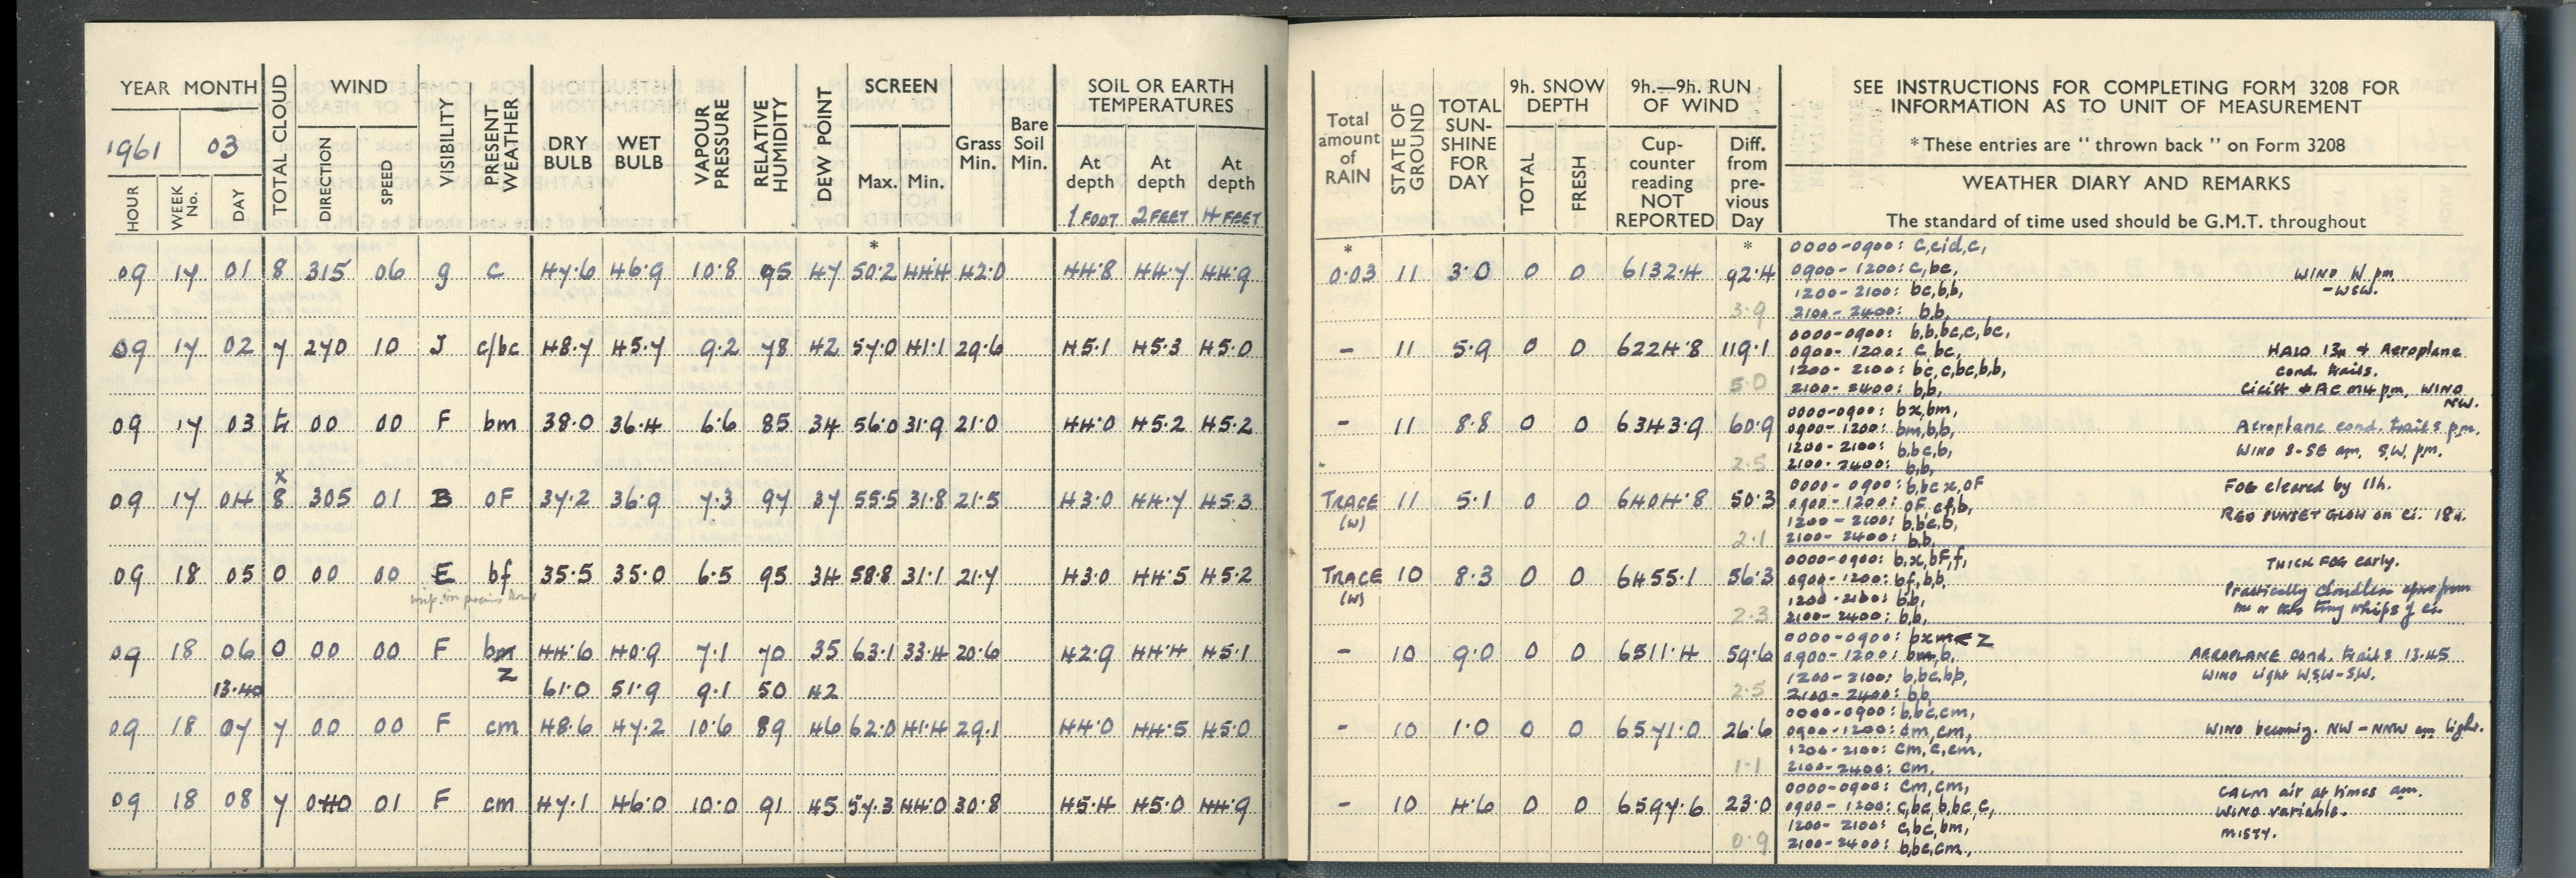 YEAR MONTH
1961 03
HOUR
WEEK No.
DAY
TOTAL CLOUD
WIND
DIRECTION
SPEED
VISIBILITY
PRESENT WEATHER
DRY BULB
WET BULB
VAPOUR PRESSURE
RELATIVE HUMIDITY
DEW POINT
SCREEN
Max. Min.
Grass Min.
Bare Soil Min.
SOIL OR EARTH TEMPERATURES
At depth 1 FOOT
At depth 2 FEET
At depth 4 FEET
Total amount of RAIN
STATE OF GROUND
TOTAL SUN-SHINE FOR DAY
9h. SNOW DEPTH
TOTAL
FRESH
9h.—9h. RUN OF WIND
Cup-counter reading NOT REPORTED
Diff. from pre-vious Day
SEE INSTRUCTIONS FOR COMPLETING FORM 3208 FOR
INFORMATION AS TO UNIT OF MEASUREMENT
* These entries are "thrown back" on Form 3208
WEATHER DIARY AND REMARKS
The standard of time used should be G.M.T. throughout
* * *
09 17 01 8 315 06 g c 47.6 46.9 10.8 95 47 50.2 44.4 42.0 44.8 44.7 44.9 0.03 11 3.0 0 0 6132.4 92.4
3.9
0000-0900: c,cid,c,
0900-1200: c,bc,
1200-2100: bc,b,b,
2100-2400: b,b,
WIND W. pm
-WSW.
09 17 02 7 270 10 J c/bc 48.7 45.7 9.2 78 42 57.0 41.1 29.6 45.1 45.3 45.0 - 11 5.9 0 0 6224.8 119.1
5.0
0000-0900: b,b,bc,c,bc,
0900-1200: c,bc,
1200-2100: bc,c,bc,b,b,
2100-2400: b,b,
HALO 13h & Aeroplane
cond. trails.
pm, WIND
NW.
09 17 03 00 00 F bm 38.0 36.4 6.6 85 34 56.0 31.9 21.0 44.0 45.2 45.2 - 11 8.8 0 0 6343.9 60.9
2.5
0000-0900: bx,bm,
0900-1200: bm,b,b,
1200-2100: b,bc,b,
2100-2400: b,b,
Aeroplane cond. trails pm.
WIND S-SE am. S.W. pm.
x
09 17 04 8 305 01 B oF 37.2 36.9 7.3 97 37 55.5 31.8 21.5 43.0 44.7 45.3 TRACE (W) 11 5.1 0 0 6404.8 50.3
2.1
0000-0900: b,bc x,oF
0900-1200: oF,cf,b,
1200-2100: b,bc,b,
2100-2400: b,b,
FOG cleared by 11h.
RED SUNSET GLOW on ci. 18h.
09 18 05 0 00 00 E bf 35.5 35.0 6.5 95 34 58.8 31.1 21.7 43.0 44.5 45.2 TRACE (W) 10 8.3 0 0 6455.1 56.3
2.3
0000-0900: b,x,bF,f,
0900-1200: bf,b,b,
1200-2100: b,b,
2100-2400: b,b,
THICK FOG early.
Practically cloudless apart from
tiny whips of ci.
09 18 06 0 00 00 F bm z 44.6 40.9 7.1 70 35 63.1 33.4 20.6 42.9 44.4 45.1 - 10 9.0 0 0 6511.4 59.6
13.40 61.0 51.9 9.1 50 42
2.5
0000-0900: bxm< Z
0900-1200: bm,b,
1200-2100: b,bc,bb,
2100-2400: bb,
AEROPLANE cond. trails 13.45
WIND light WSW-SW.
09 18 07 7 00 00 F cm 48.6 47.2 10.6 89 46 62.0 41.4 29.1 44.0 44.5 45.0 - 10 1.0 0 0 6571.0 26.6
1.1
0000-0900: b,bc,cm,
0900-1200: cm,cm,
1200-2100: cm,c,cm,
2100-2400: cm,
WIND becoming. NW-NNW am light.
09 18 08 7 040 01 F cm 47.1 46.0 10.0 91 45 57.3 44.0 30.8 45.4 45.0 44.9 - 10 4.6 0 0 6597.6 23.0
0.9
0000-0900: cm,cm,
0900-1200: c,bc,b,bc,c,
1200-2100: c,bc,bm,
2100-2400: b,bc,cm,
CALM air at times am.
WIND variable.
MISTY.